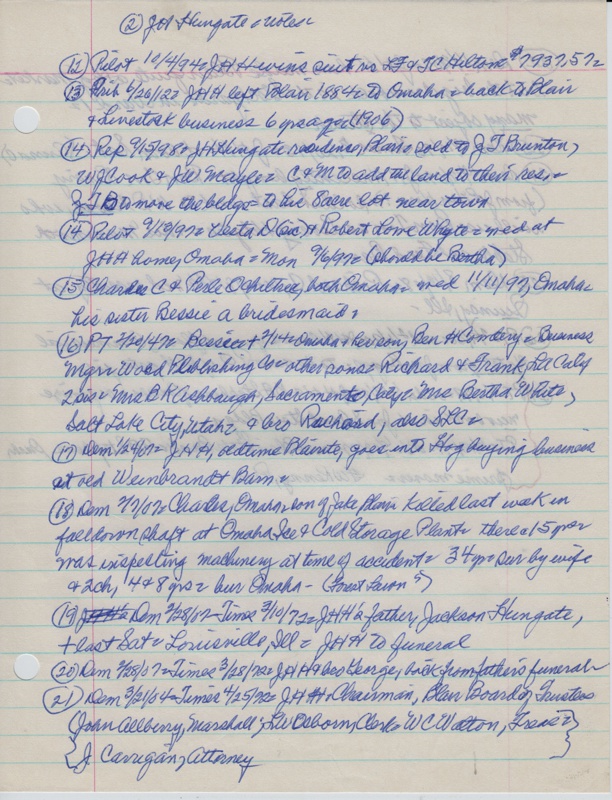 ② JH Hungate - notes
⑫ Pilot 10/4/94 = JH H wins suit vs LF & TC Hilton $7937.57 =
⑬ Trib 6/26/12 = JHH left Blair 1884 = to Omaha = back to Blair
& Livestock business 6 yrs ago (1906)
⑭ Rep 9/15/98 = JH Hungate residence, Blair = sold to JT Brunton,
WJ Cook & JW Mayle = C & M to add the land to their res, =
JTB to move the bldgs to his 8 acre lot near town
⑭ Pilot 9/19/97 = Veeta D (sic) & Robert Lowe Whyte = wed at
JHH home, Omaha = Mon 9/6/97 = (should be Bertha)
⑮ Charles C & Perle Ochiltree, both Omaha = wed 11/11/97, Omaha =
his sister Bessie a bridesmaid =
⑯ PT 2/20/47 = Bessie + 2/14 = Omaha + her son, Ben H Cowdery = Business
Mgr = World Publishing Co = other sons = Richard & Frank, La Caly
2 sis = Mrs BK Ashbaugh, Sacramento, Caly = Mrs Bertha White,
Salt Lake City, Utah = & bro Richard, also SLC =
⑰ Dem 1/24/07 = JHH, oldtime Blairite, goes into Hog buying business
at old Weinbrandt Barn =
⑱ Dem 2/7/07 = Charles, Omaha = son of Jake Blair Killed last week in
fall down shaft at Omaha Ice & Cold Storage Plant = there 15 yrs =
was inspecting machinery at time of accident = 34 yrs = sur by wife
& 2 ch, 4 & 8 yrs = bur Omaha - (Forest Lawn?)
⑲ Dem 2/28/07 = Times 3/10/72 = JHH's father, Jackson Hungate,
+ last Sat = Louisville, Ill = JHH to funeral
⑳ Dem 3/28/07 = Times 3/28/72 = JHH & bro George, back from father's funeral
㉑ Dem 3/21/64 = Times 4/25/72 = JHH = Chairman, Blair Board of Trustees
(John Allberry, Marshall; LW Osborn, Clerk = WC Walton, Treas =
J Carrigan, Attorney